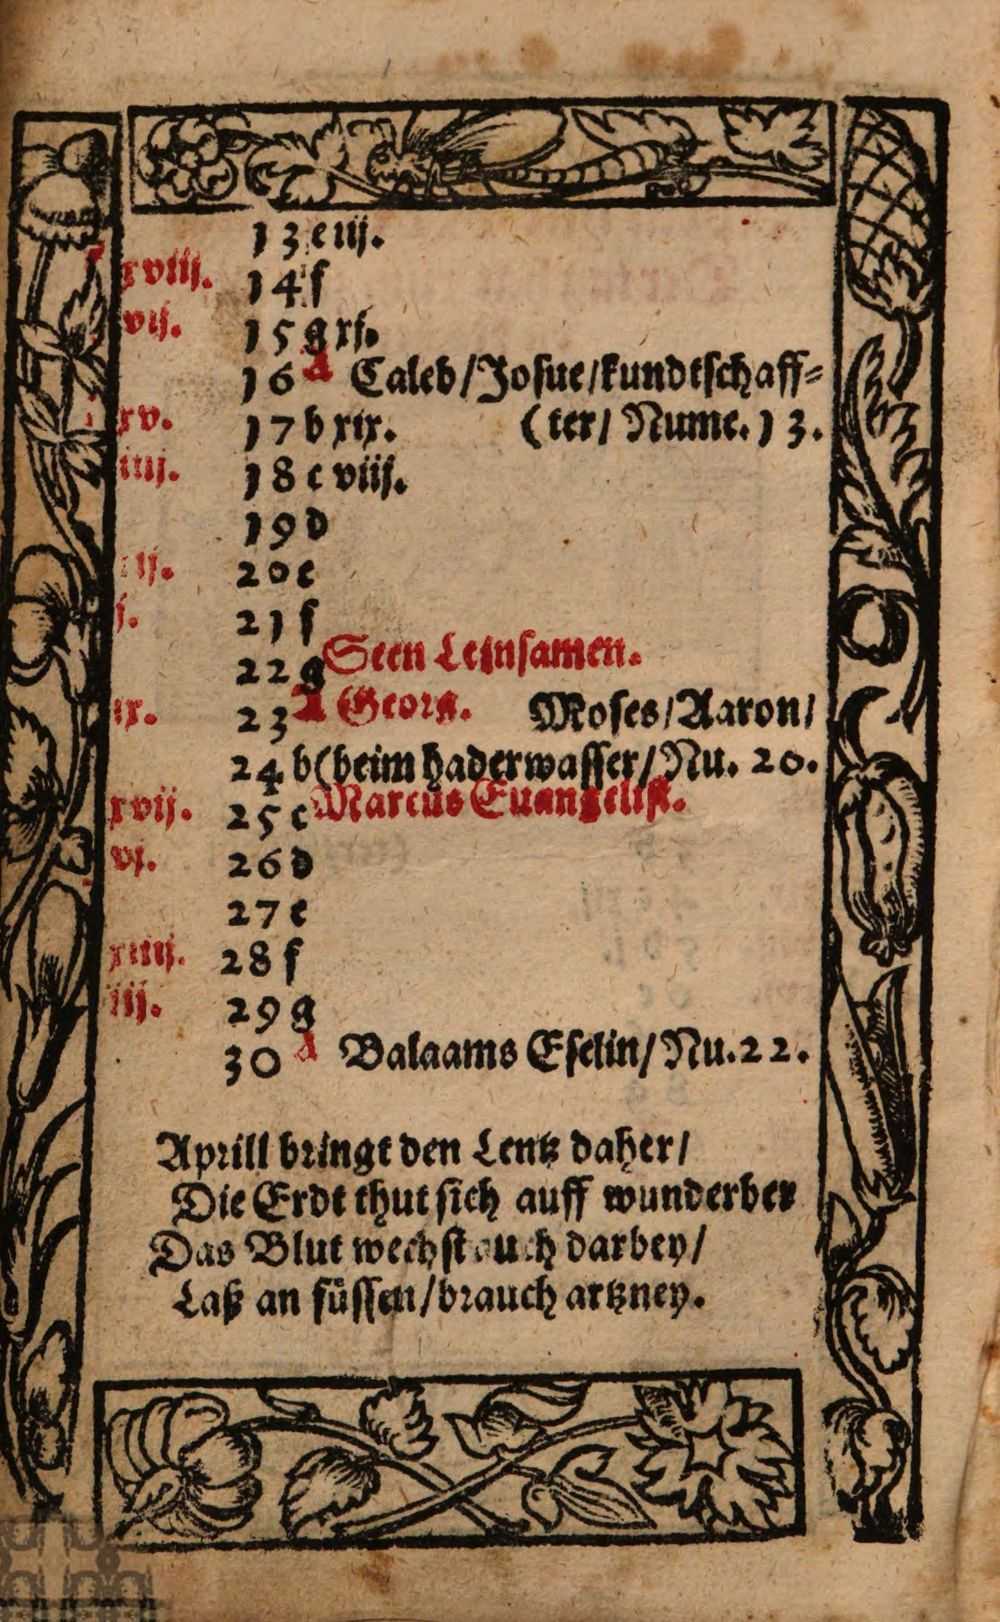 13 e iij.
xviij. 14 f
vij. 15 g xj.
16 A Caleb/Josue/kundtschaff=
xv. 17 b xix. (ter/ Nume. 13.
iiij. 18 c viij.
19 d
20 e
j. 21 f
22 g Seen Leinsamen.
ix. 23 A Georg. Moses/Aaron/
24 b (beim haderwasser/Nu. 20.
xvij. 25 c Marcus Euangelist.
vj. 26 d
27 e
xiiij. 28 f
iij. 29 g
30 A Balaams Eselin/Nu. 22.
Aprill bringt den Lentz daher/
Die Erdt thut sich auff wunderber
Das Blut wechst auch darbey/
Laß an füssen/brauch artzney.